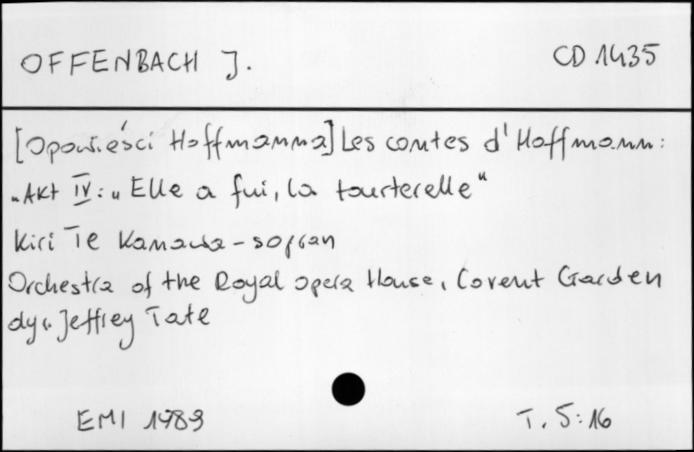 OFFENBACH J. CD 1435
[Opowieści Hoffmanna] Les contes d'Hoffmann:
"Akt IV: „Elle a fui, la tourterelle"
Kiri Te Kanawa - sopran
Orchestra of the Royal Opera House, Covent Garden
dyr. Jeffrey Tate
EMI 1989 T. 5:16